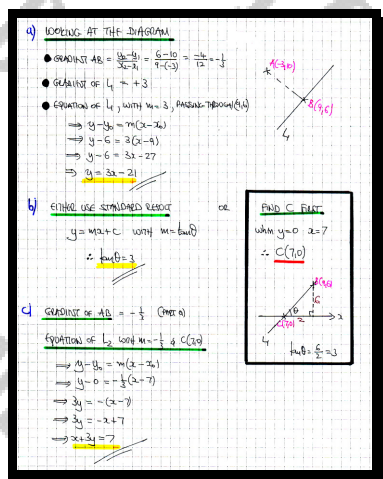 a) LOOKING AT THE DIAGRAM
● GRADIENT AB = (y₂-y₁)/(x₂-x₁) = (6-10)/(9-(-3)) = -4/12 = -1/3
● GRADIENT OF L₁ = +3
● EQUATION OF L₁, WITH m=3, PASSING THROUGH (9,6)
⇒ y-y₀ = m(x-x₀)
⇒ y-6 = 3(x-9)
⇒ y-6 = 3x-27
⇒ y = 3x-21
A(-3,10)
B(9,6)
L₁
b) EITHER USE STANDARD RESULT
y = mx+c WITH m=tanθ
∴ tanθ = 3
OR
FIND C FIRST
When y=0 x=7
∴ C(7,0)
B(9,6)
6
θ
x
C(7,0)
2
L₁
tanθ = 6/2 = 3
c) GRADIENT OF AB = -1/3 (PART a)
EQUATION OF L₂ WITH m=-1/3 & C(7,0)
⇒ y-y₀ = m(x-x₀)
⇒ y-0 = -1/3(x-7)
⇒ 3y = -(x-7)
⇒ 3y = -x+7
⇒ x+3y = 7